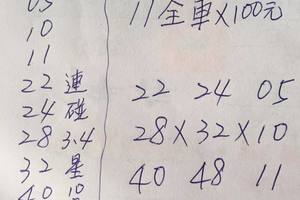 05
10
11
22 連
24 碰
28 3.4
32 星
40 10
11全車×100元
22 24 05
28×32×10
40 48 11